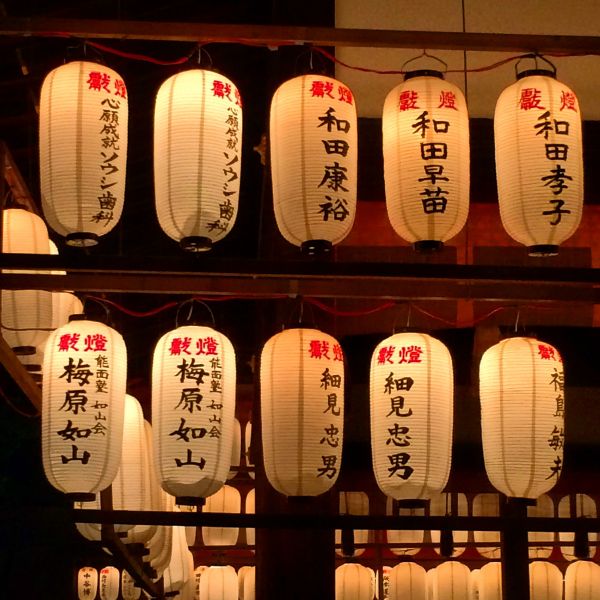 獻燈
心願成就
ソウシ歯科
獻燈
心願成就
ソウシ歯科
獻燈
和田康裕
獻燈
和田早苗
獻燈
和田孝子
獻燈
能面塾 如山会
梅原如山
獻燈
能面塾 如山会
梅原如山
獻燈
細見忠男
獻燈
細見忠男
獻燈
福島敏夫
中谷博